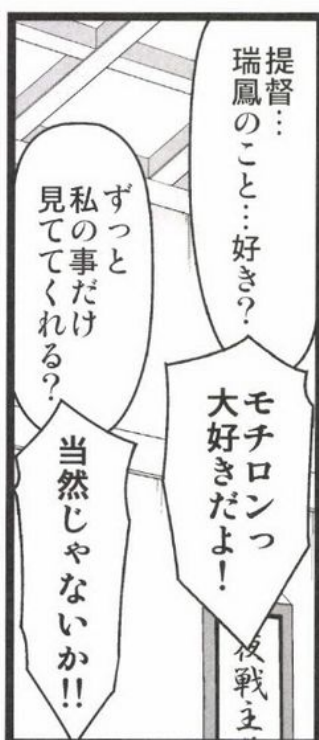 提督…
瑞鳳のこと…好き?
モチロンっ
大好きだよ!
ずっと
私の事だけ
見ててくれる?
当然じゃないか!!
夜戦主